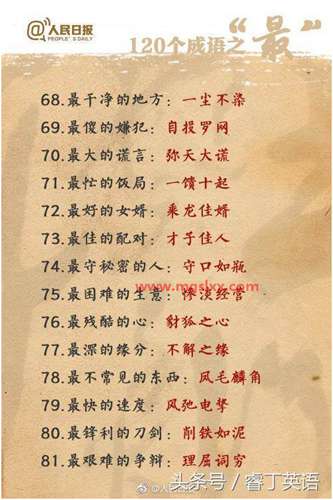 人民日报
PEOPLE'S DAILY
120个成语之“最”
68.最干净的地方：一尘不染
69.最傻的嫌犯：自报罗网
70.最大的谎言：弥天大谎
71.最忙的饭局：一馈十起
72.最好的女婿：乘龙佳婿
73.最佳的配对：才子佳人
74.最守秘密的人：守口如瓶
www.mgslxx.com
75.最困难的生意：惨淡经营
76.最残酷的心：豺狐之心
77.最深的缘分：不解之缘
78.最不常见的东西：凤毛麟角
79.最快的速度：风弛电掣
80.最锋利的刀剑：削铁如泥
81.最艰难的争辩：理屈词穷
头条号/睿丁英语